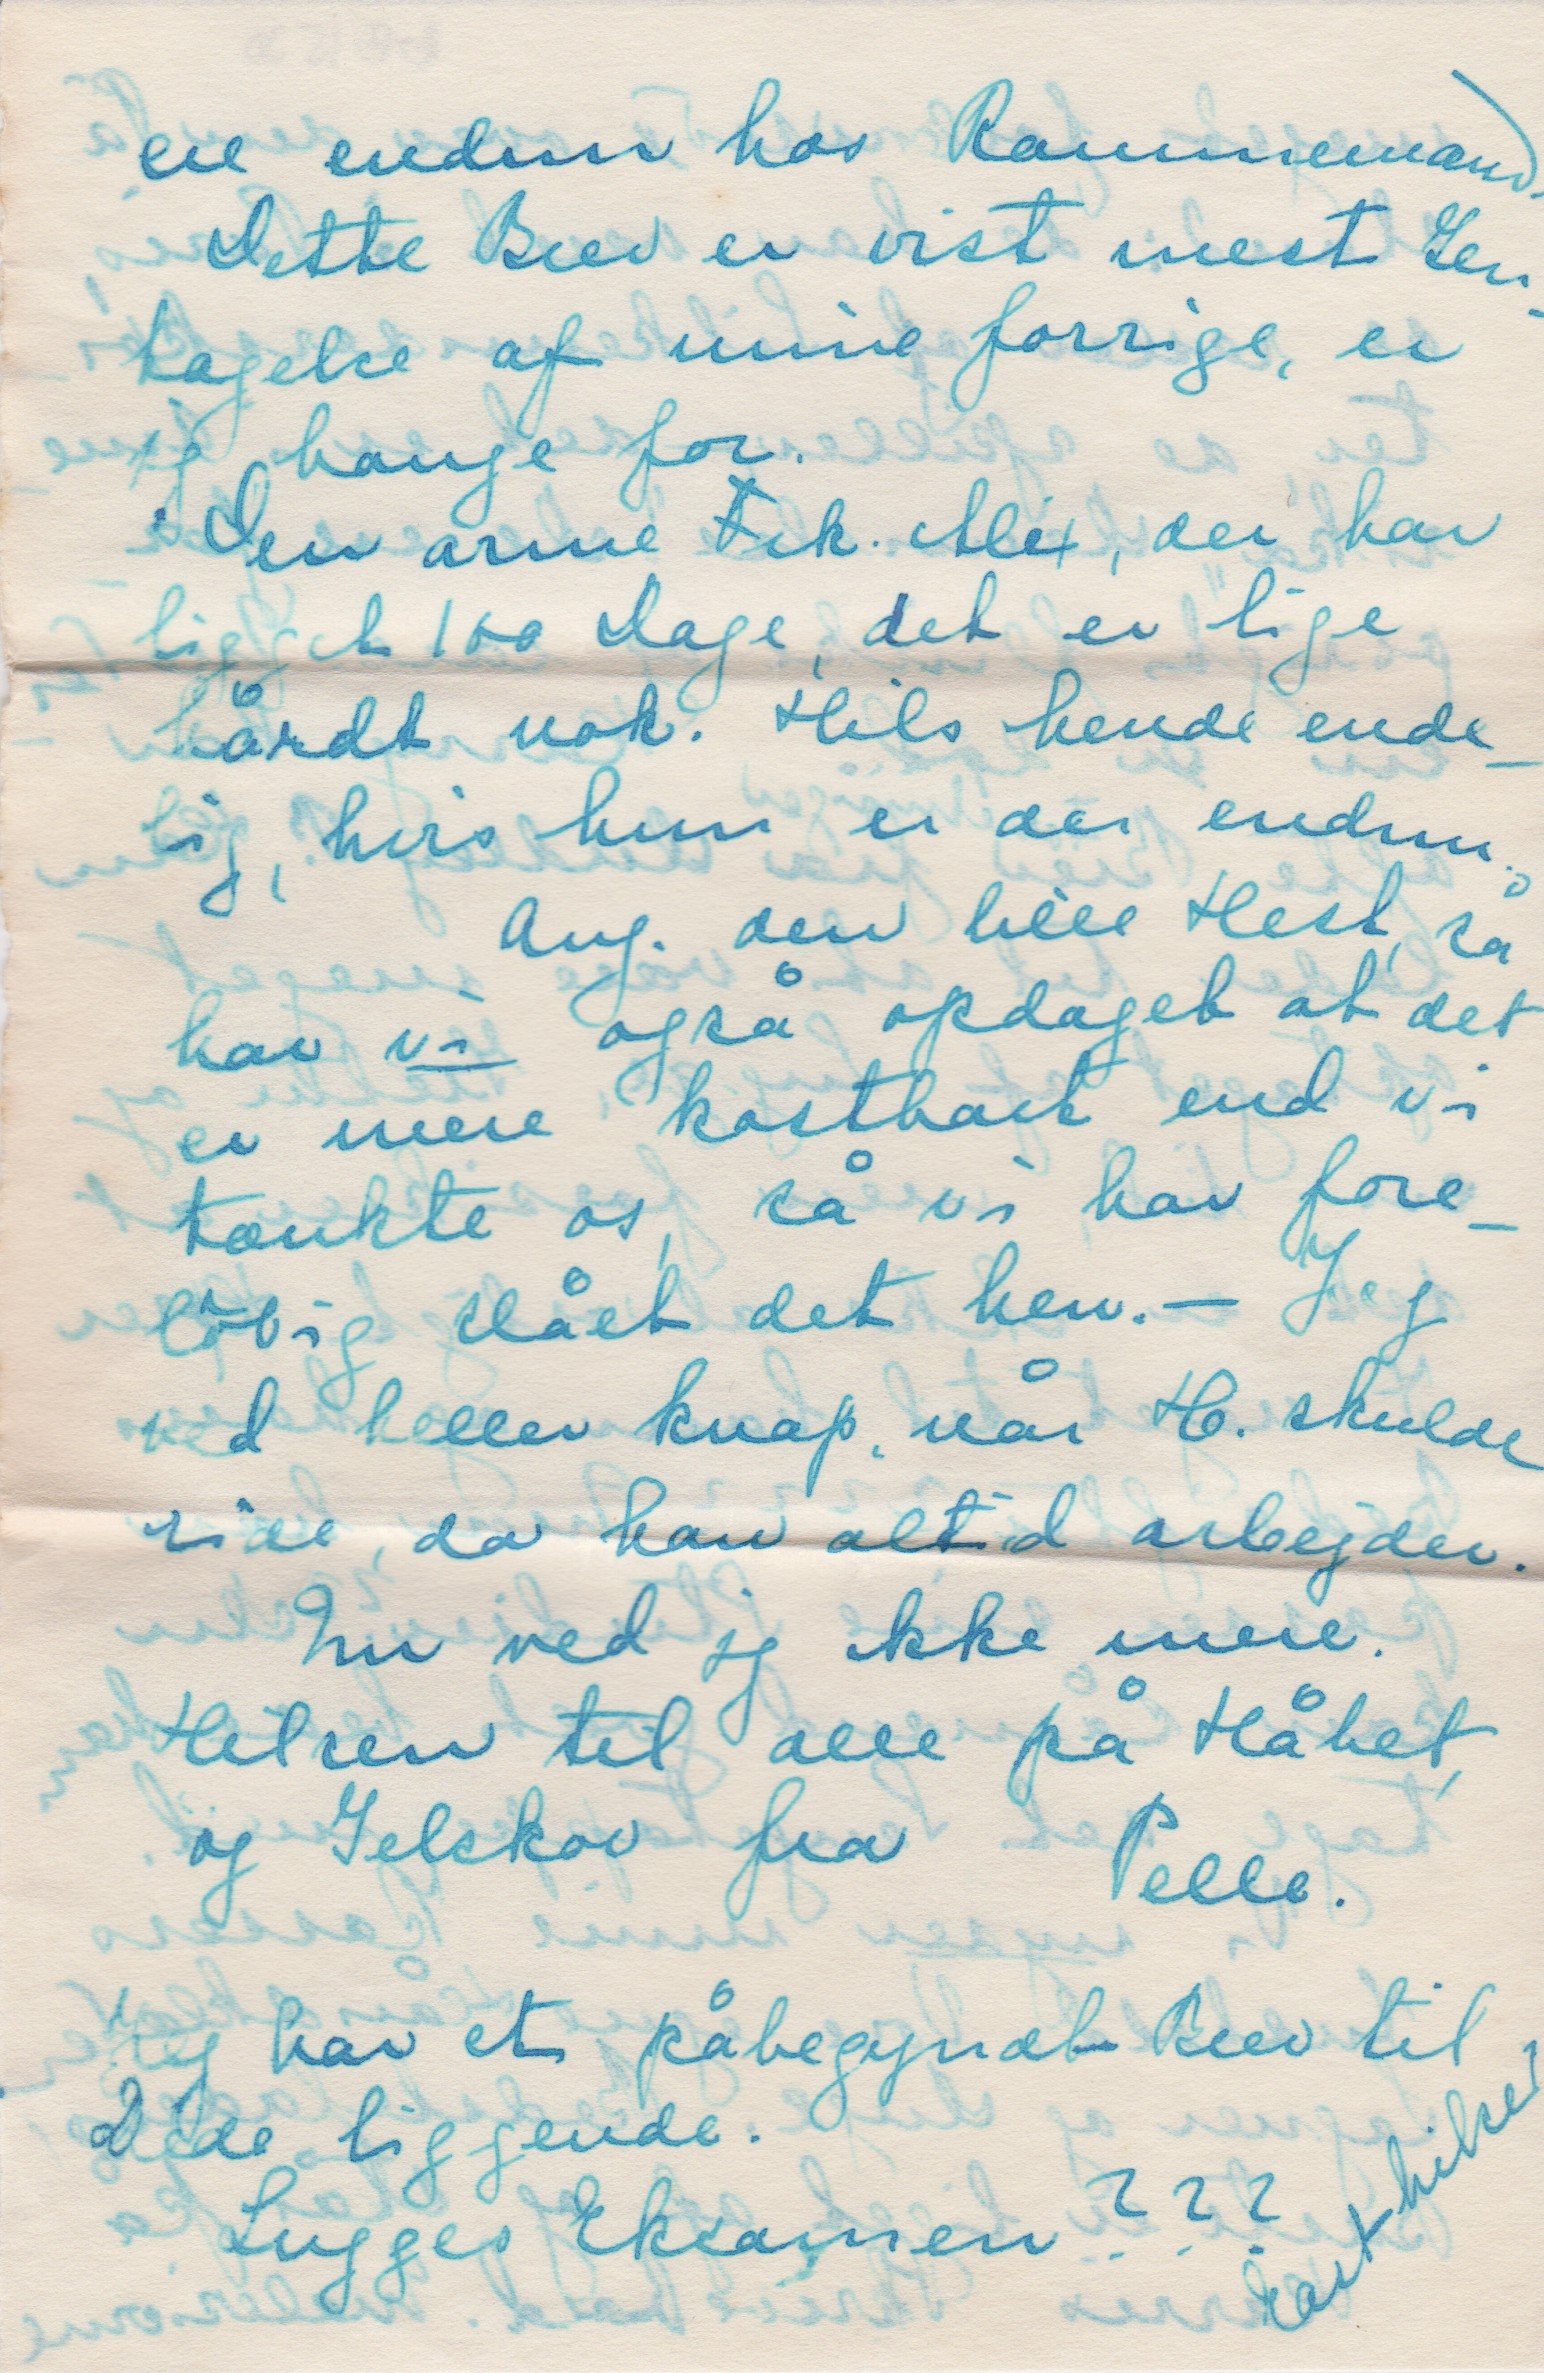 ere endnu hos Rammemand.)
Dette Brev er vist mest Gen-
tagelse af mine forrige, er
jeg bange for.
Den arme Frk. Alix, der har
ligget 100 Dage, det er lige
hårdt nok. Hils hende ende-
lig, hvis hun er der endnu.
Ang. den lille Hest, så
har vi også opdaget at det
er mere kostbart end vi
tænkte os, så vi har fore-
løbig slået det hen. — Jeg
ved heller knap, når H. skulde
ride, da han altid arbejder.
Nu ved jeg ikke mere.
Hilsen til alle på Håbet,
og Gelskov fra Pelle.
Jeg har et påbegyndt Brev til
Dede liggende.
Lugges Eksamen ? ? ?
Carl hilser